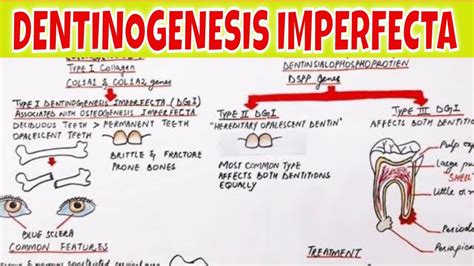 DENTINOGENESIS IMPERFECTA
TYPE I COLLAGEN
COL1A1 & COL1A2 genes
DENTINSIALOPHOSPHOPROTIEN
DSPP genes
TYPE I DENTINOGENESIS IMPERFECTA (DGI)
ASSOCIATED WITH OSTEOGENESIS IMPERFECTA
DECIDUOUS TEETH > PERMANENT TEETH
OPALESCENT TEETH
BRITTLE & FRACTURE
PRONE BONES
BLUE SCLERA
COMMON FEATURES
TYPE II DGI
"HEREDITARY OPALESCENT DENTIN"
MOST COMMON TYPE
AFFECTS BOTH DENTITIONS
EQUALLY
TYPE III DGI
AFFECTS BOTH DENTITIONS
Pulp
Large
"SHELL
Little
Periapic
TREATMENT